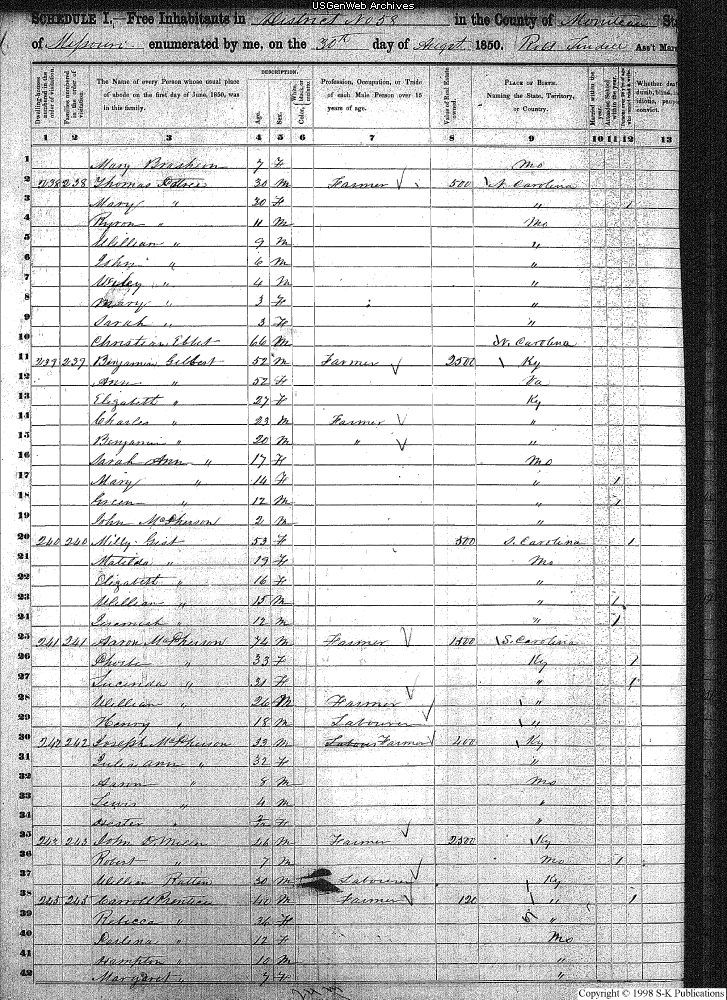 USGenWeb Archives
SCHEDULE I.—Free Inhabitants in District No 58 in the County of
of Missouri enumerated by me, on the 30th day of Augst 1850. Ass't Mars
Dwelling-houses numbered in the order of visitation.
Families numbered in the order of visitation.
The Name of every Person whose usual place of abode on the first day of June, 1850, was in this family.
DESCRIPTION.
Age.
Sex.
Color,
White, black, or mulatto.
Profession, Occupation, or Trade of each Male Person over 15 years of age.
Value of Real Estate owned.
PLACE OF BIRTH. Naming the State, Territory, or Country.
Married within the year.
Attended School within the year.
Whether deaf dumb, blind, idiotic, convict.
1 2 3 4 5 6 7 8 9 10 11 12 13
1 Mary 7 F Mo
2 238 238 Thomas 30 M Farmer 500 N. Carolina
3 Mary " 30 F " 1
4 Byron " 11 M Mo
5 William " 9 M "
6 John " 6 M "
7 Wiley " 4 M "
8 Mary " 3 F "
9 Sarah " 3 F "
10 Christian 66 M N. Carolina
11 239 239 Benjamin Gilbert 52 M Farmer 2500 Ky
12 Ann " 52 F Va
13 Elizabeth " 27 F Ky
14 Charles " 23 M Farmer "
15 Benjamin " 20 M " "
16 Sarah Ann " 17 F Mo
17 Mary " 14 F " 1
18 Green " 12 M " 1
19 John McPherson 2 M "
20 240 240 Milly Gist 53 F 500 S. Carolina 1
21 Matilda " 19 F Mo
22 Elizabeth " 16 F "
23 William " 15 M " 1
24 Jeremiah " 12 M " 1
25 241 241 Aaron McPherson 74 M Farmer 1500 S. Carolina
26 Phoebe " 33 F Ky 1
27 Lucinda " 31 F " 1
28 William " 26 M Farmer "
29 Henry " 18 M Labourer "
30 242 242 Joseph McPherson 33 M Farmer 400 Ky
31 Julia Ann " 32 F "
32 Aaron " 8 M Mo
33 Lewis " 4 M "
34 Hester " F "
35 243 243 John 46 M Farmer 2500 Ky
36 Robert " 7 M Mo 1
37 William 30 M Labourer Ky
38 245 245 Carroll Prentice 40 M Farmer 120 " 1
39 Rebecca " 36 F "
40 " 12 F Mo
41 Hampton " 10 M "
42 Margaret " 7 F "
Copyright © 1998 S-K Publications